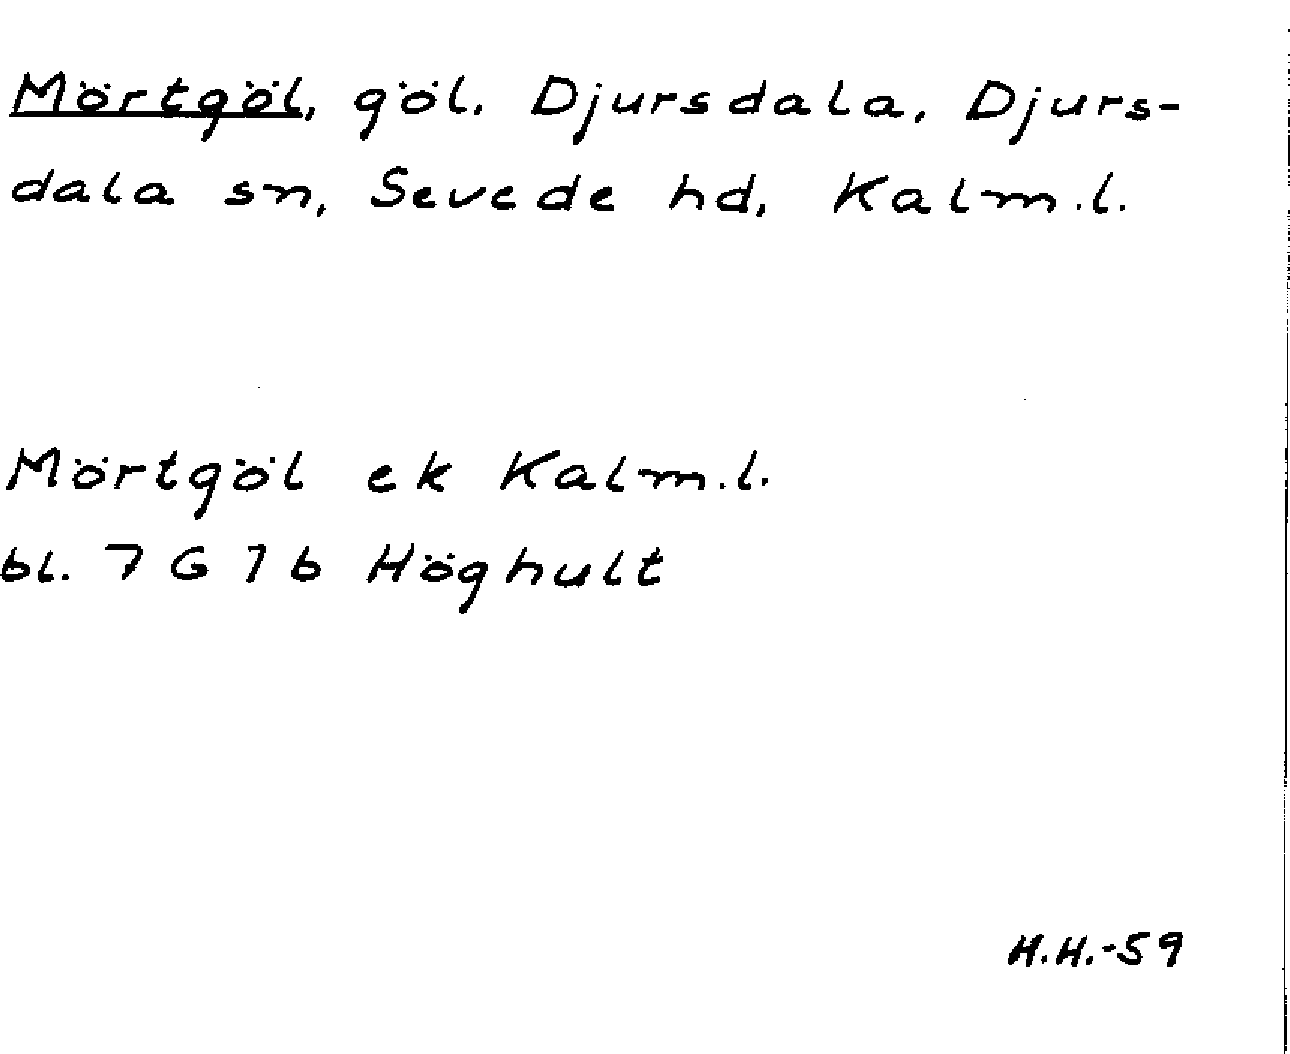 Mörtgöl, göl. Djursdala, Djurs-
dala sn, Sevede hd, Kalm.l.
Mörtgöl ek Kalm.l.
bl. 7 G 7 b Höghult
H.H.-59